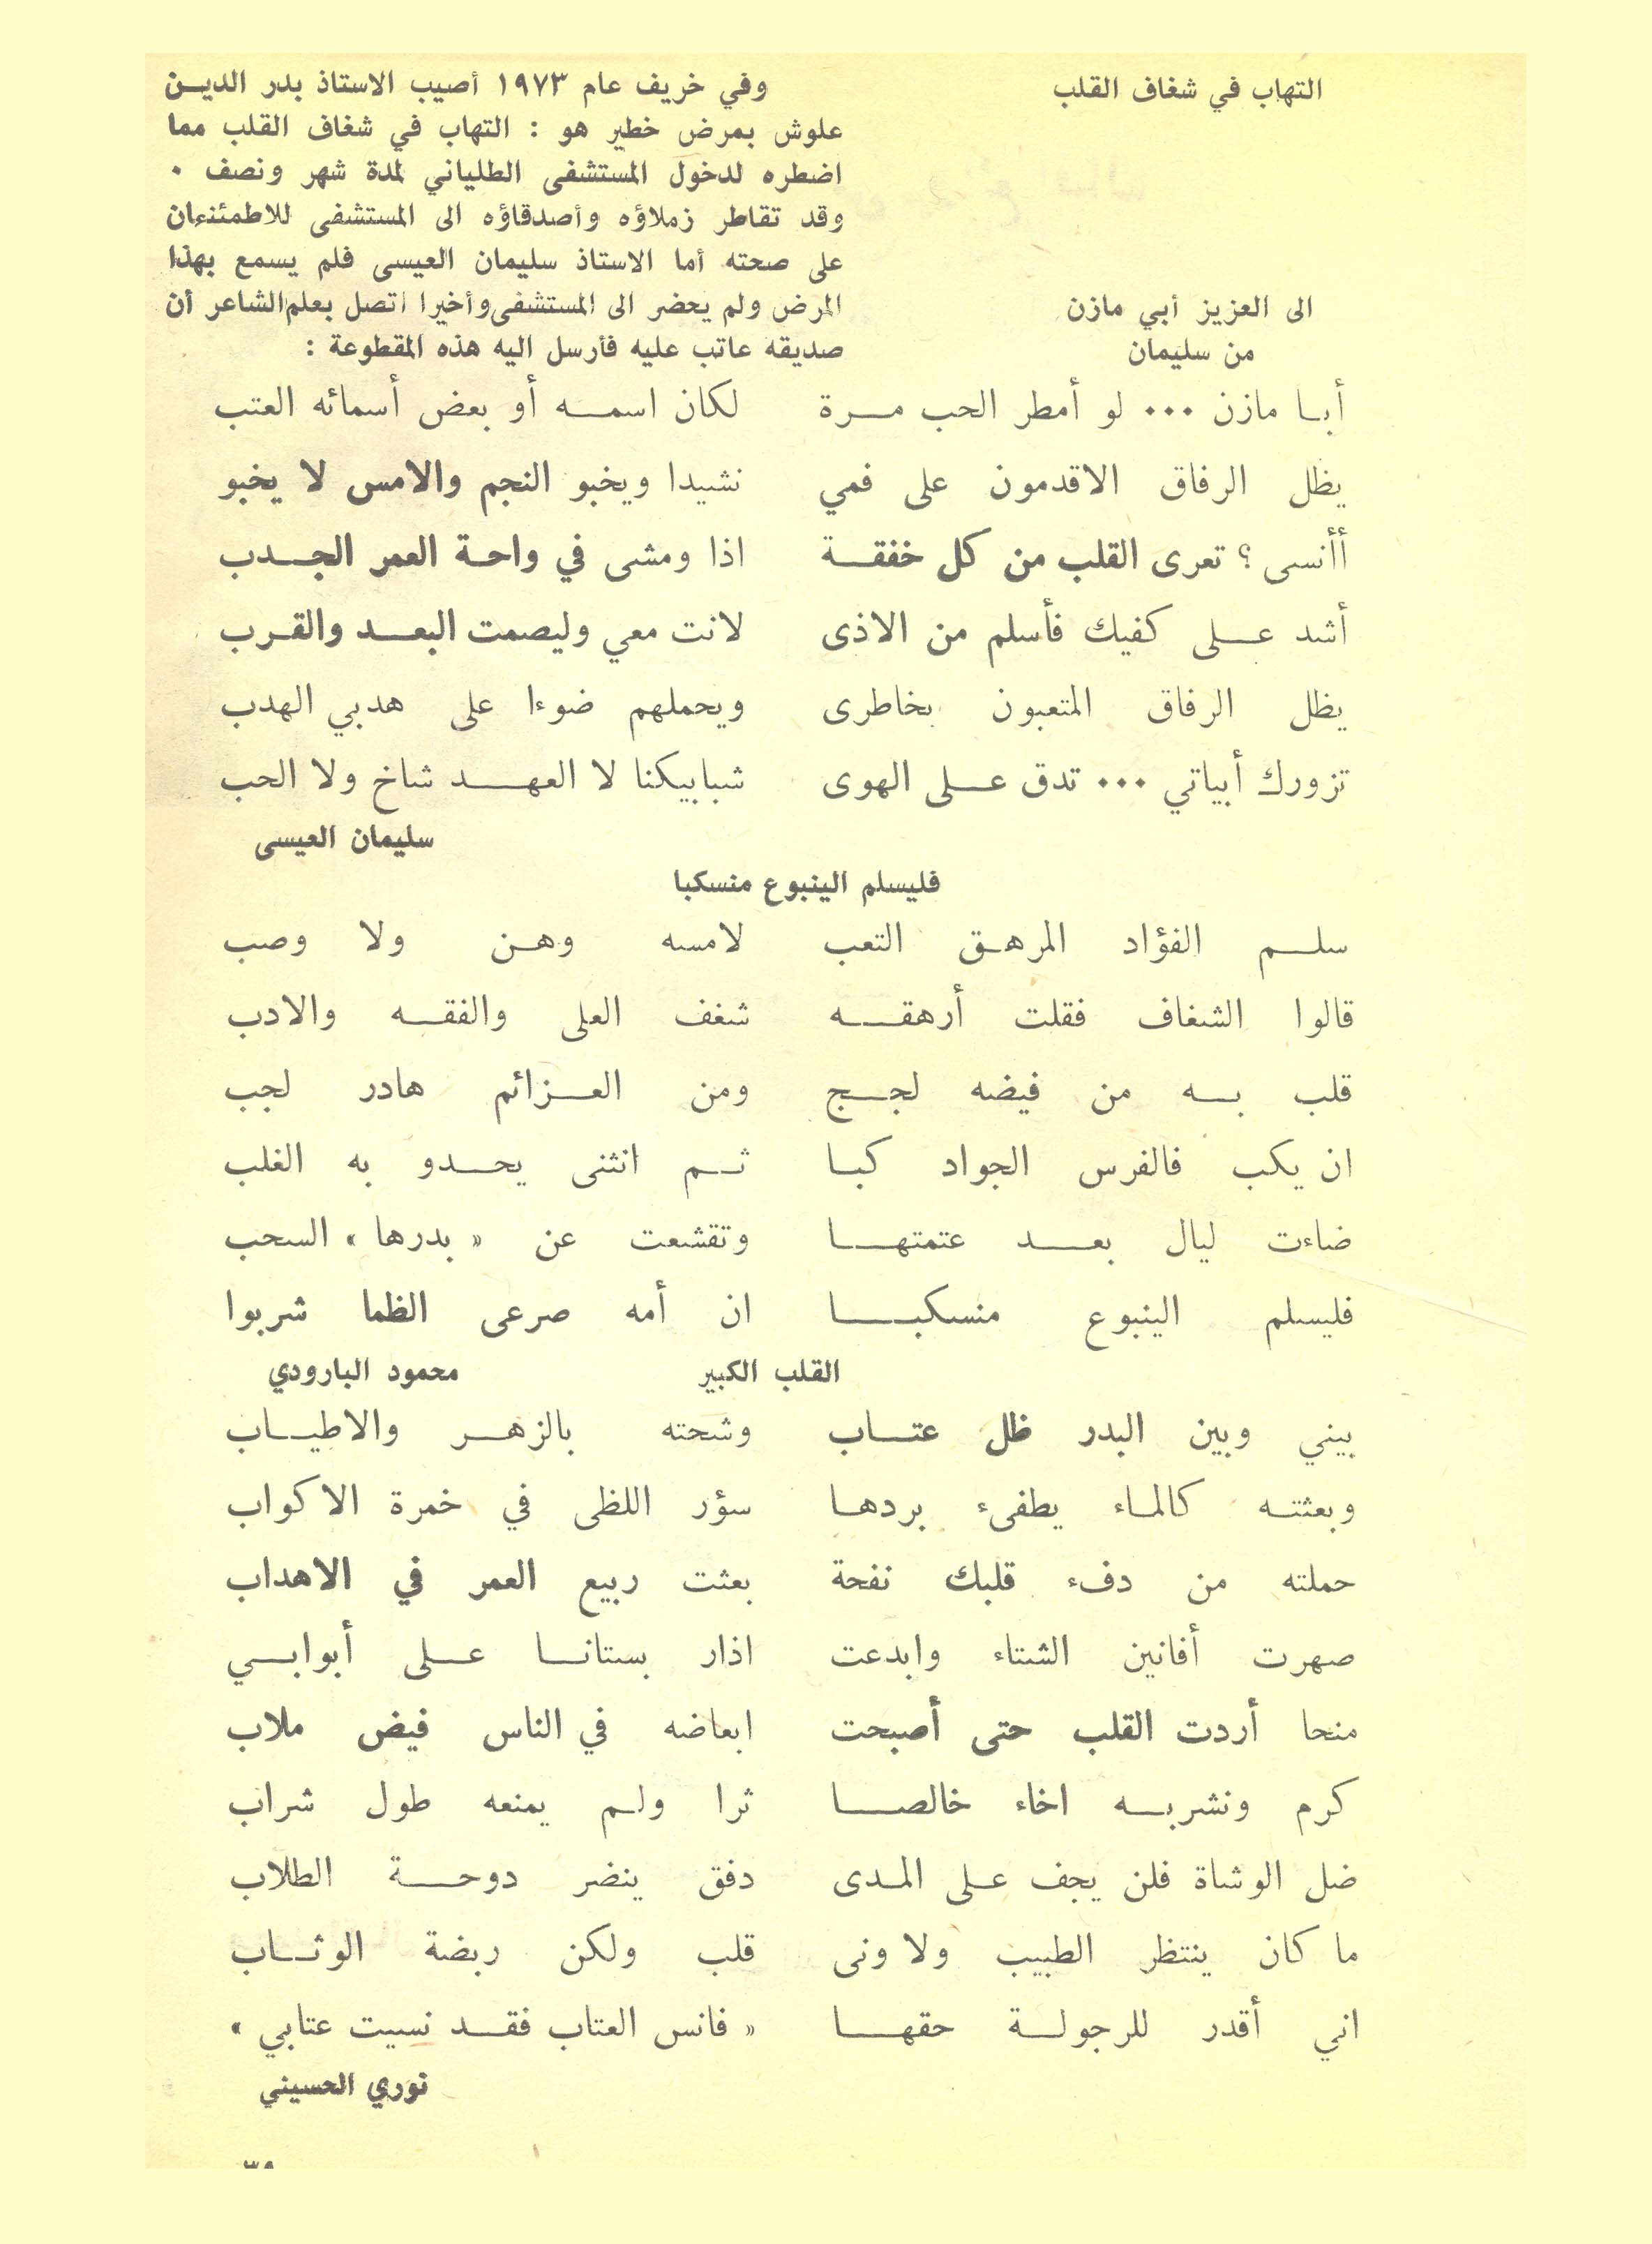 التهاب في شغاف القلب
وفي خريف عام ١٩٧٣ أصيب الاستاذ بدر الديـن
علوش بمرض خطير هو : التهاب في شغاف القلب مما
اضطره لدخول المستشفى الطلياني لمدة شهر ونصف ٠
وقد تقاطر زملاؤه وأصدقاؤه الى المستشفى للاطمئنءان
على صحته أما الاستاذ سليمان العيسى فلم يسمع بهذا
المرض ولم يحضر الى المستشفى وأخيرا اتصل بعلم الشاعر أن
صديقه عاتب عليه فأرسل اليه هذه المقطوعة :
الى العزيز أبي مازن
من سليمان
أبـا مازن ٠٠٠ لو أمطر الحب مـــرة لكان اسمـــه أو بعض أسمائه العتب
يظل الرفاق الاقدمون على فمي نشيدا ويخبو النجم والامس لا يخبو
أأنسى ؟ تعرى القلب من كل خفقـــة اذا ومشى في واحـة العمر الجـــدب
أشد عـــلى كفيك فأسلم من الاذى لانت معي وليصمت البعـــد والقـرب
يظل الرفاق المتعبون بخاطرى ويحملهم ضوءا على هدبي الهدب
تزورك أبياتي ٠٠٠ تدق عـــلى الهوى شبابيكنا لا العهـــد شاخ ولا الحب
سليمان العيسى
فليسلم الينبوع منسكبا
سلـــم الفؤاد المرهـق التعب لامسه وهـن ولا وصب
قالوا الشغاف فقلت أرهقـــه شغف العلى والفقـــه والادب
قلب بـــه من فيضه لجـــج ومن العـــزائم هادر لجب
ان يكب فالفرس الجواد كبـا ثـــم انثنى يحـــدو به الغلب
ضاءت ليال بعـــد عتمتهـــا وتقشعت عن « بدرها » السحب
فليسلم الينبوع منسكبـــا ان أمه صرعى الظما شربوا
محمود البارودي
القلب الكبير
بيني وبين البدر ظل عتـــاب وشحته بالزهـــر والاطيـــاب
وبعثتـــه كالمـاء يطفىء بردهـا سؤر اللظى في خمرة الاكواب
حملته من دفء قلبك نفحة بعثت ربيع العمر في الاهداب
صهرت أفانين الشتاء وابدعت اذار بستانـــا عـــلى أبوابـــي
منحا أردت القلب حتى أصبحت ابعاضه في الناس فيض ملاب
كرم ونشربـــه اخاء خالصـــا ثرا ولـم يمنعه طول شراب
ضل الوشاة فلن يجف عـلى المـدى دفق ينضر دوحـــة الطلاب
ما كان ينتظر الطبيب ولا ونى قلب ولكن ربضة الوثـــاب
اني أقدر للرجولـــة حقهـــا « فانس العتاب فقـــد نسيت عتابي »
نوري الحسيني